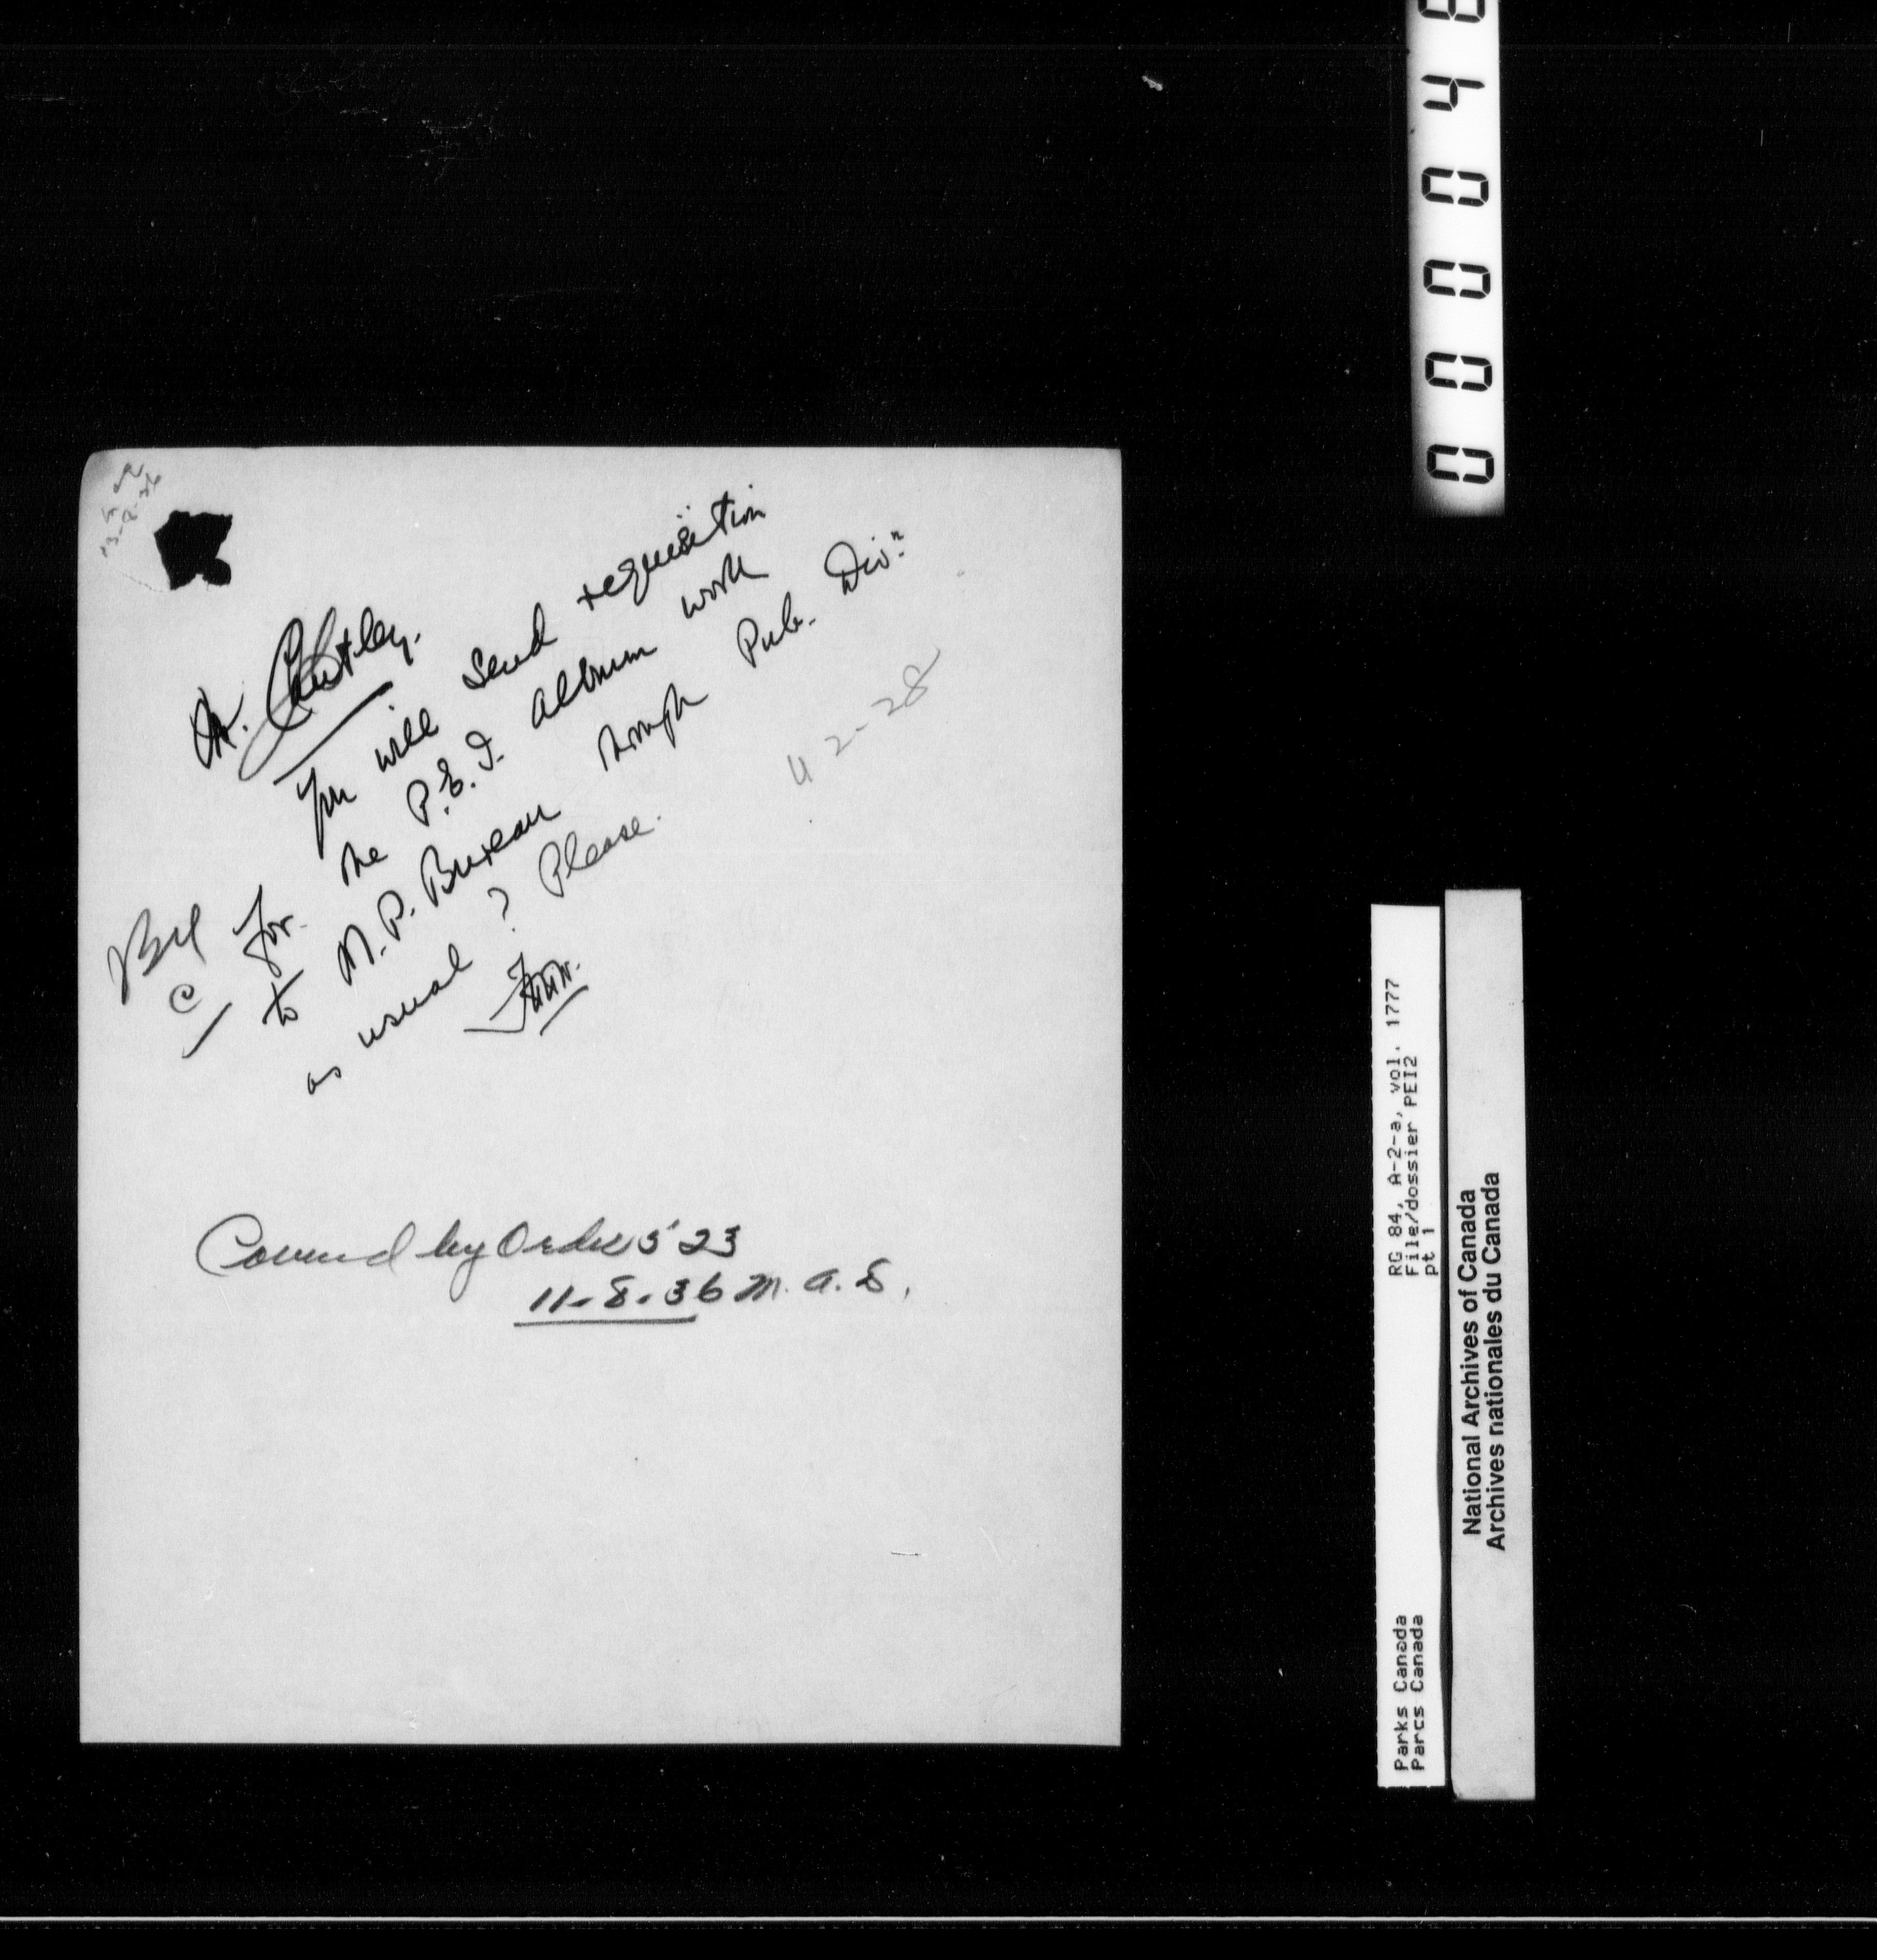 Mr. Cautley.
You will send requisition
for the P.E.I. album work
to M.P. Bureau through Pub. Div.n
as usual? Please.
U 2-28
Covered by Order 523
11-8-36 M.A.S.
000048
RG 84, A-2-a, vol. 1777
File/dossier PEI2
pt 1
Parks Canada
Parcs Canada
National Archives of Canada
Archives nationales du Canada